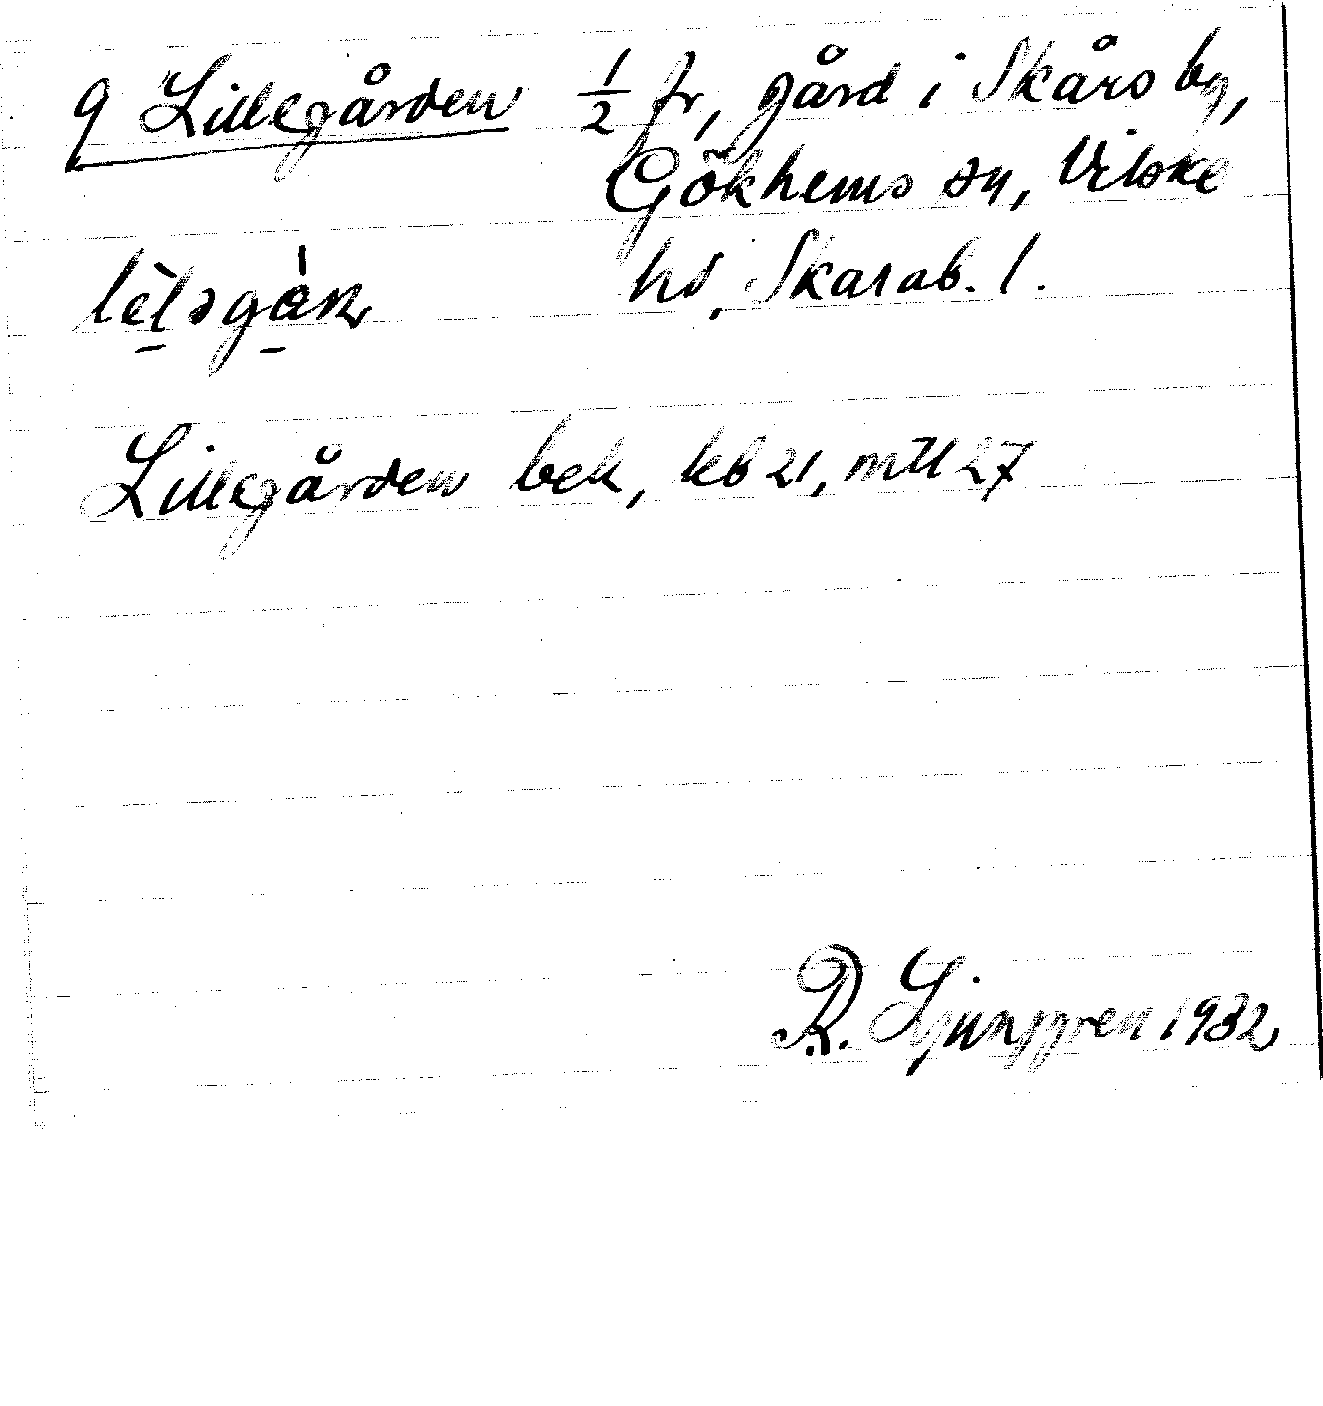 9 Lillegården 1/2 fr, gård i Skårs by,
Gökhems sn, Vilske
hd, Skarab. l.
Lillegården bek, kb 21, mtl 27
R. Ljunggren 1932